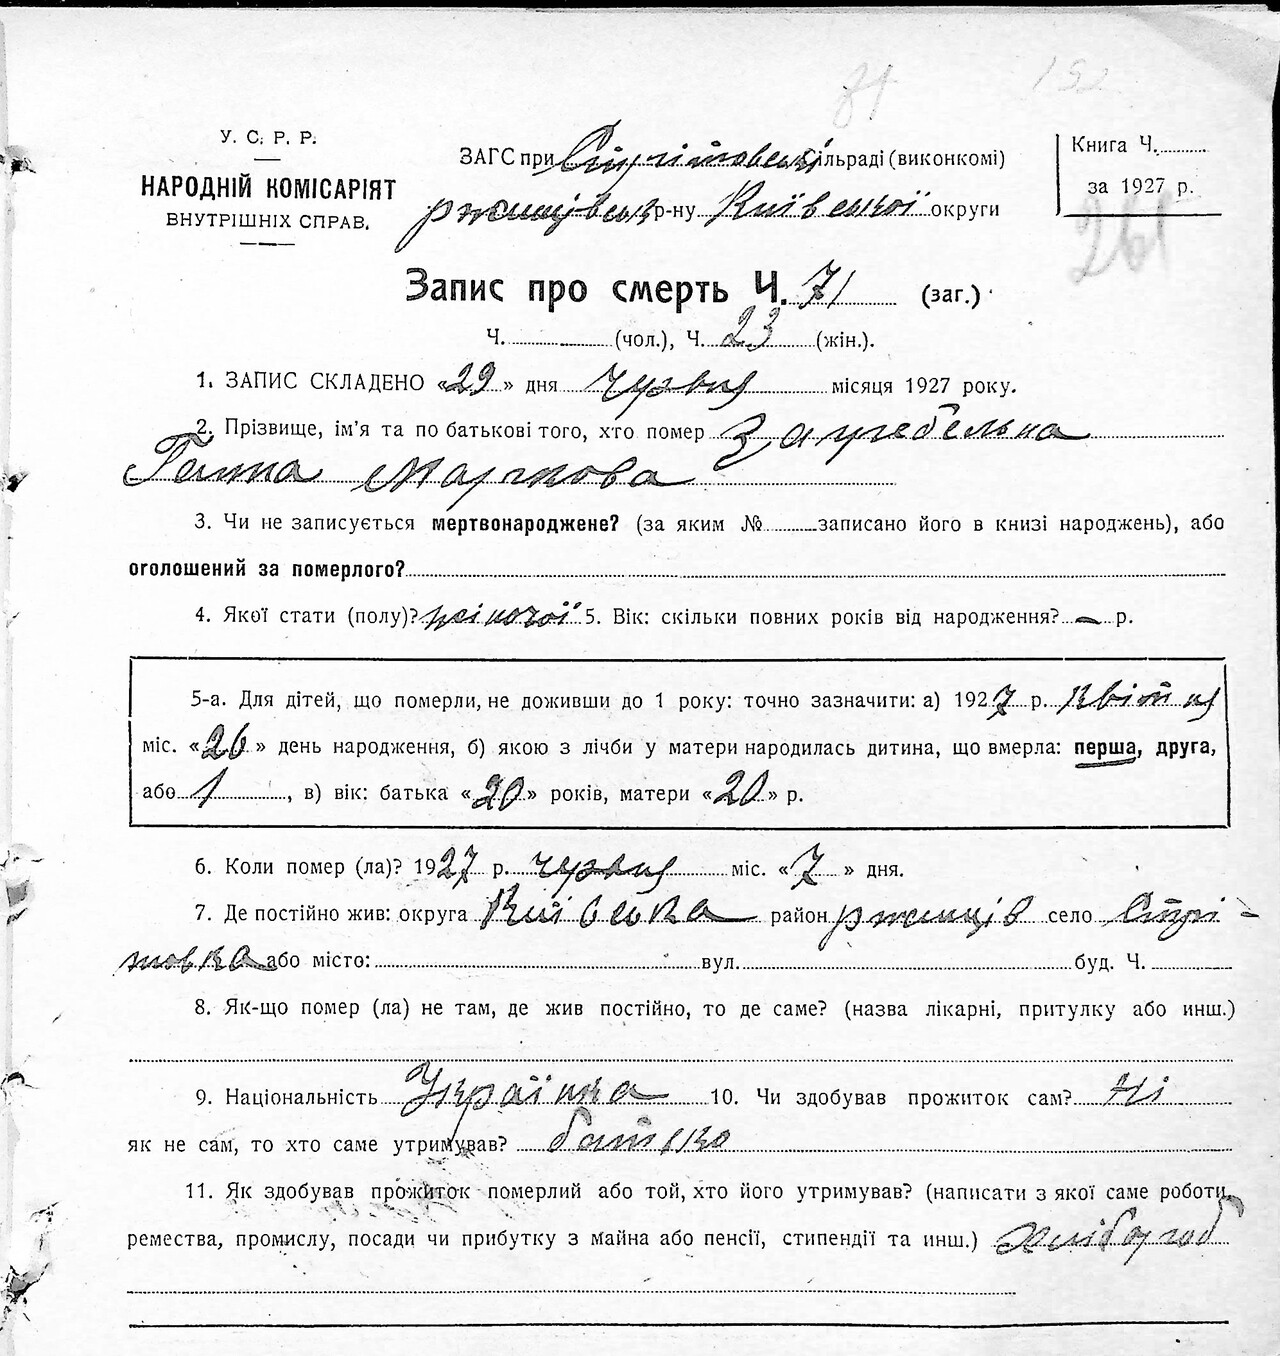 81 192
У. С. Р. Р.
НАРОДНІЙ КОМІСАРІЯТ
ВНУТРІШНІХ СПРАВ.
ЗАГС при Стрітовські сільраді (виконкомі)
ржищівськ р-ну Київської округи
Книга Ч.
за 1927 р.
261
Запис про смерть Ч. 71 (заг.)
Ч. (чол.), Ч. 23 (жін.).
1. ЗАПИС СКЛАДЕНО «29» дня червня місяця 1927 року.
2. Прізвище, ім'я та по батькові того, хто помер Загребельна
Ганна Маркова
3. Чи не записується мертвонароджене? (за яким № записано його в книзі народжень), або
оголошений за померлого?
4. Якої стати (полу)? жіночої 5. Вік: скільки повних років від народження? — р.
5-а. Для дітей, що померли, не доживши до 1 року: точно зазначити: а) 1927 р. квітня
міс. «26» день народження, б) якою з лічби у матери народилась дитина, що вмерла: перша, друга,
або 1, в) вік: батька «20» років, матери «20» р.
6. Коли помер (ла)? 1927 р. червня міс. «7» дня.
7. Де постійно жив: округа Київська район ржищів село Стрі-
товка або місто: вул. буд. Ч.
8. Як-що помер (ла) не там, де жив постійно, то де саме? (назва лікарні, притулку або инш.)
9. Національність Українка 10. Чи здобував прожиток сам? Ні
як не сам, то хто саме утримував? батько
11. Як здобував прожиток померлий або той, хто його утримував? (написати з якої саме роботи,
ремества, промислу, посади чи прибутку з майна або пенсії, стипендії та инш.) хлібороб